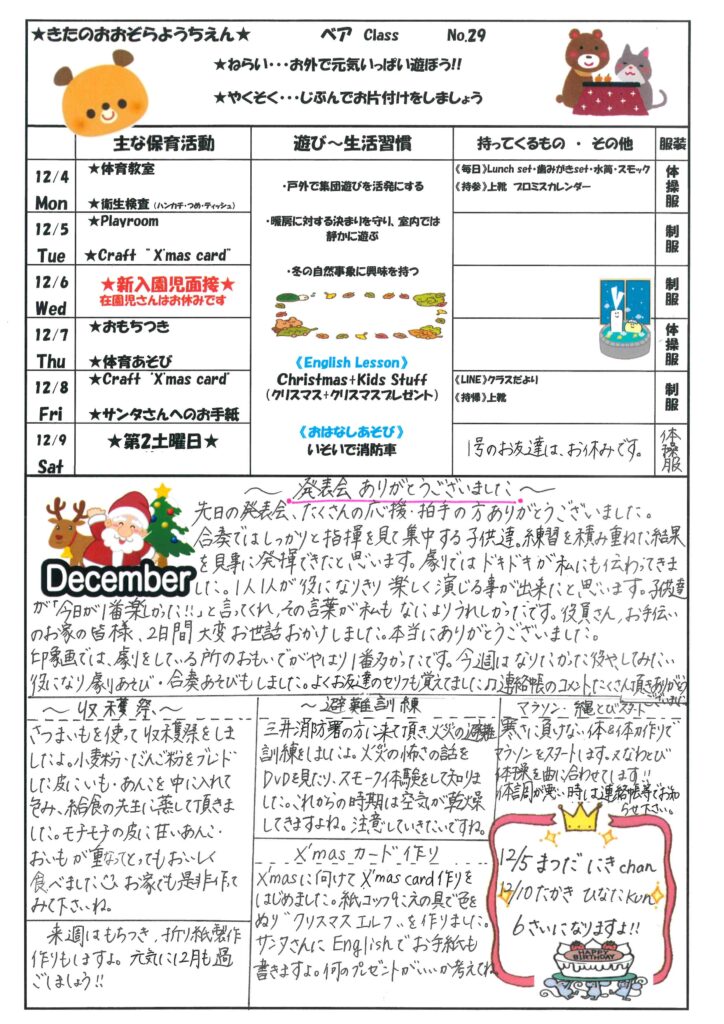 ★きたのおおぞらようちえん★ ベア Class No.29
★ねらい・・・お外で元気いっぱい遊ぼう!!
★やくそく・・・じぶんでお片付けをしましょう
主な保育活動 遊び～生活習慣 持ってくるもの ・ その他 服装
12/4 Mon
★体育教室
★衛生検査(ハンカチ・つめ・ティッシュ)
《毎日》Lunch set・歯みがきset・水筒・スモック
《持参》上靴 プロミスカレンダー
体操服
12/5 Tue
★Playroom
★Craft "X'mas card"
制服
12/6 Wed
★新入園児面接★
在園児さんはお休みです
制服
12/7 Thu
★おもちつき
★体育あそび
体操服
12/8 Fri
★Craft "X'mas card"
★サンタさんへのお手紙
《LINE》クラスだより
《持帰》上靴
制服
12/9 Sat
★第2土曜日★
1号のお友達は、お休みです。
体操服
・戸外で集団遊びを活発にする
・暖房に対する決まりを守り、室内では
静かに遊ぶ
・冬の自然事象に興味を持つ
《English Lesson》
Christmas+Kids Stuff
(クリスマス+クリスマスプレゼント)
《おはなしあそび》
いそいで消防車
～発表会 ありがとうございました～
December
先日の発表会、たくさんの応援・拍手の方ありがとうございました。
合奏ではしっかりと指揮を見て集中する子供達。練習を積み重ねた結果
を見事に発揮できたと思います。劇ではドキドキが私にも伝わってきま
した。1人1人が役になりきり楽しく演じる事が出来たと思います。子供達
が「今日が1番楽しかった!!」と言ってくれ、その言葉が私もなによりうれしかったです。役員さん、お手伝い
のお家の皆様、2日間大変お世話おかけしました。本当にありがとうございました。
印象画では、劇をしている所のおもいでがやはり1番多かったです。今週はなりたかった役やしてみたい
役になり劇あそび・合奏あそびもしました。よくお友達のセリフも覚えてました♫連絡帳のコメントたくさん頂きありがとうございました
～収穫祭～
さつまいもを使って収穫祭をしま
したよ。小麦粉・だんご粉をブレンド
した皮にいも・あんこを中に入れて
包み、給食の先生に蒸して頂きま
した。モチモチの皮に甘いあんこ・
おいもが重なってとってもおいしく
食べました☺お家でも是非作って
みて下さいね。
来週はもちつき、折り紙製作
作りもしますよ。元気に12月も過
ごしましょう!!
～避難訓練
三井消防署の方に来て頂き火災の避難
訓練をしましたよ。火災の怖さの話を
DVDを見たり、スモーク体験をして知りま
した。これからの時期は空気が乾燥
してきますよね。注意していきたいですね。
X'mas カード作り
X'masに向けてX'mas card作りを
はじめました。紙コップ9こえの具で色を
ぬり"クリスマスエルフ"を作りました。
サンタさんにEnglishでお手紙も
書きますよ。何のプレゼントがいいか考えてね
マラソン・縄とびスタート
寒さに負けない体&体力作りで
マラソンをスタートします。又なわとび
体操を曲に合わせてします!!
体調が悪い時は連絡帳等でお知
らせ下さい。
12/5 まつだ にき chan
12/10 たかき ひなた kun
6さいになりますよ!!
HAPPY BIRTHDAY